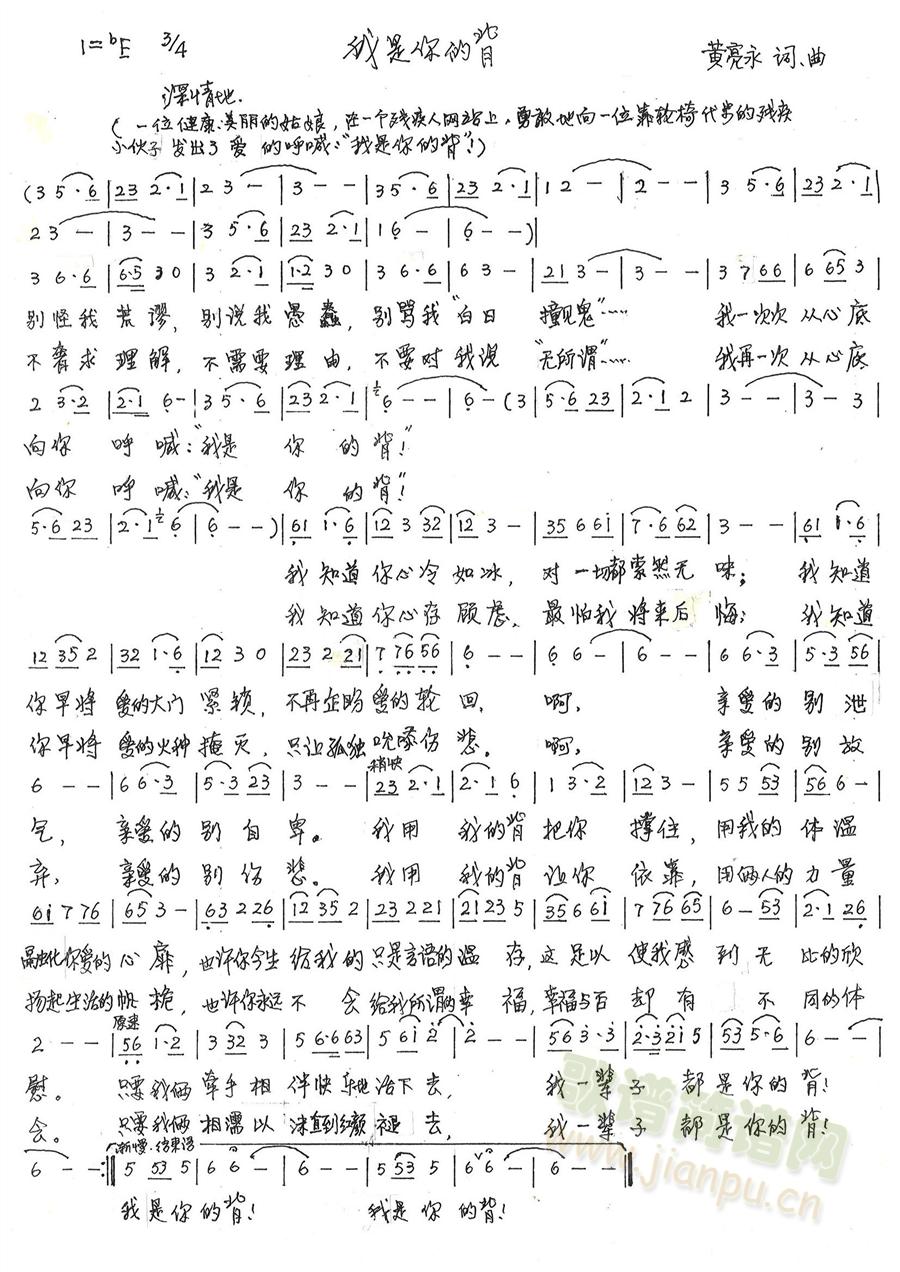 1=ᵇE 3/4 我是你的背 黄亮永 词、曲
深情地.
(一位健康美丽的姑娘,在一个残疾人网站上,勇敢地向一位靠轮椅代步的残疾
小伙子发出了爱的呼喊:“我是你的背!”)
(3 5·6 | 23 2·1 | 2 3 - | 3 - - | 35·6 | 23 2·1 | 12 - | 2 - - | 3 5·6 | 23 2·1 |
23 - | 3 - - | 3 5·6 | 23 2·1 | 16 - | 6 - -) |
3 6·6 | 6·5 3 0 | 3 2·1 | 1·2 3 0 | 3 6·6 | 6 3 - | 21 3 - | 3 - - | 3 7 66 | 6 65 3 |
别怪我荒谬,别说我愚蠢,别骂我“白日撞见鬼”…… 我一次次从心底
不奢求理解,不需要理由,不要对我说“无所谓”…… 我再一次从心底
2 3·2 | 2·1 6 - | 3 5·6 | 23 2·1 | 6 - - | 6 - - (3 | 5·6 23 | 2·1 2 | 3 - - | 3 - 3 |
向你呼喊:“我是你的背!”
向你呼喊:“我是你的背!”
5·6 23 | 2·1 6 | 6 - -) | 61 1·6 | 12 3 32 | 12 3 - | 35 6 61 | 7·6 62 | 3 - - | 61 1·6 |
我知道你心冷如冰,对一切都索然无味; 我知道
我知道你心存顾虑,最怕我将来后悔; 我知道
12 35 2 | 32 1·6 | 12 3 0 | 23 2 21 | 7 76 56 | 6 - - | 6 6 - | 6 - - | 6 6·3 | 5·3 56 |
你早将爱的大门紧锁,不再企盼爱的轮回,啊, 亲爱的别泄
你早将爱的火种掩灭,只让孤独吮啄伤悲。啊, 亲爱的别放
稍快
6 - - | 6 6·3 | 5·3 23 | 3 - - | 23 2·1 | 2·1 6 | 1 3·2 | 12 3 - | 5 5 53 | 56 6 - |
气,亲爱的别自卑。我用我的背把你撑住,用我的体温
弃,亲爱的别伤悲。我用我的背让你依靠,用俩人的力量
61 7 76 | 65 3 - | 63 2 26 | 12 35 2 | 23 2 21 | 21 23 5 | 35 6 61 | 7 76 65 | 6 - 53 | 2·1 26 |
融化你爱的心扉,也许你今生给我的只是言语的温存,这足以使我感到无比的欣
扬起生活的帆桅,也许你永远不会给我所谓的幸福,幸福与否却有不同的体
原速
2 - - | 56 1·2 | 3 32 3 | 5 6·6 63 | 5 61 2 | 2 - - | 56 3·3 | 2·3 21 5 | 53 5·6 | 6 - - |
慰。只要我俩牵手相伴快乐地活下去, 我一辈子都是你的背!
会。只要我俩相濡以沫直到红颜褪去, 我一辈子都是你的背!
渐慢·结束语
6 - - :‖ 5 53 5 | 6 6 - | 6 - - | 5 53 5 | 6 6 - | 6 - - ‖
我是你的背! 我是你的背!
歌谱简谱网
www.jianpu.cn